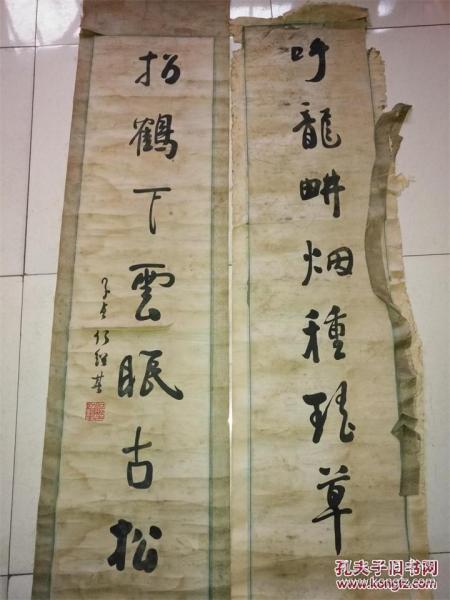 吁龍畊烟種瑤草
招鶴下雲眠古松
子貞何紹基
孔夫子旧书网
www.kongfz.com